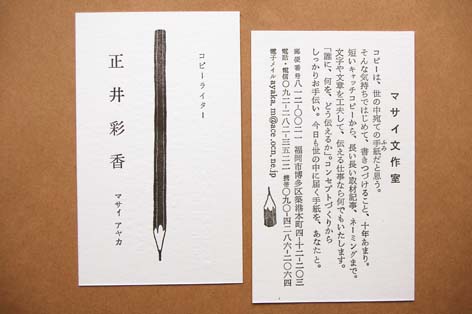 コピーライター
正井彩香
マサイ アヤカ
マサイ文作室
コピーは、世の中宛ての手紙だと思う。
そんな気持ちではじめて、書きつづけること、十年あまり。
短いキャッチコピーから、長い長い取材記事、ネーミングまで。
文字や文章を工夫して、伝える仕事なら何でもいたします。
「誰に、何を、どう伝えるか」。コンセプトづくりから
しっかりお手伝い。今日も世の中に届く手紙を、あなたと。
郵便番号 八一二-〇〇二一 福岡市博多区築港本町四-十二-二〇三
電話・電信 〇九二-二八二-三五二二 携帯 〇九〇-四二八六-二〇六四
電子メイル ayaka_m@ace.ocn.ne.jp